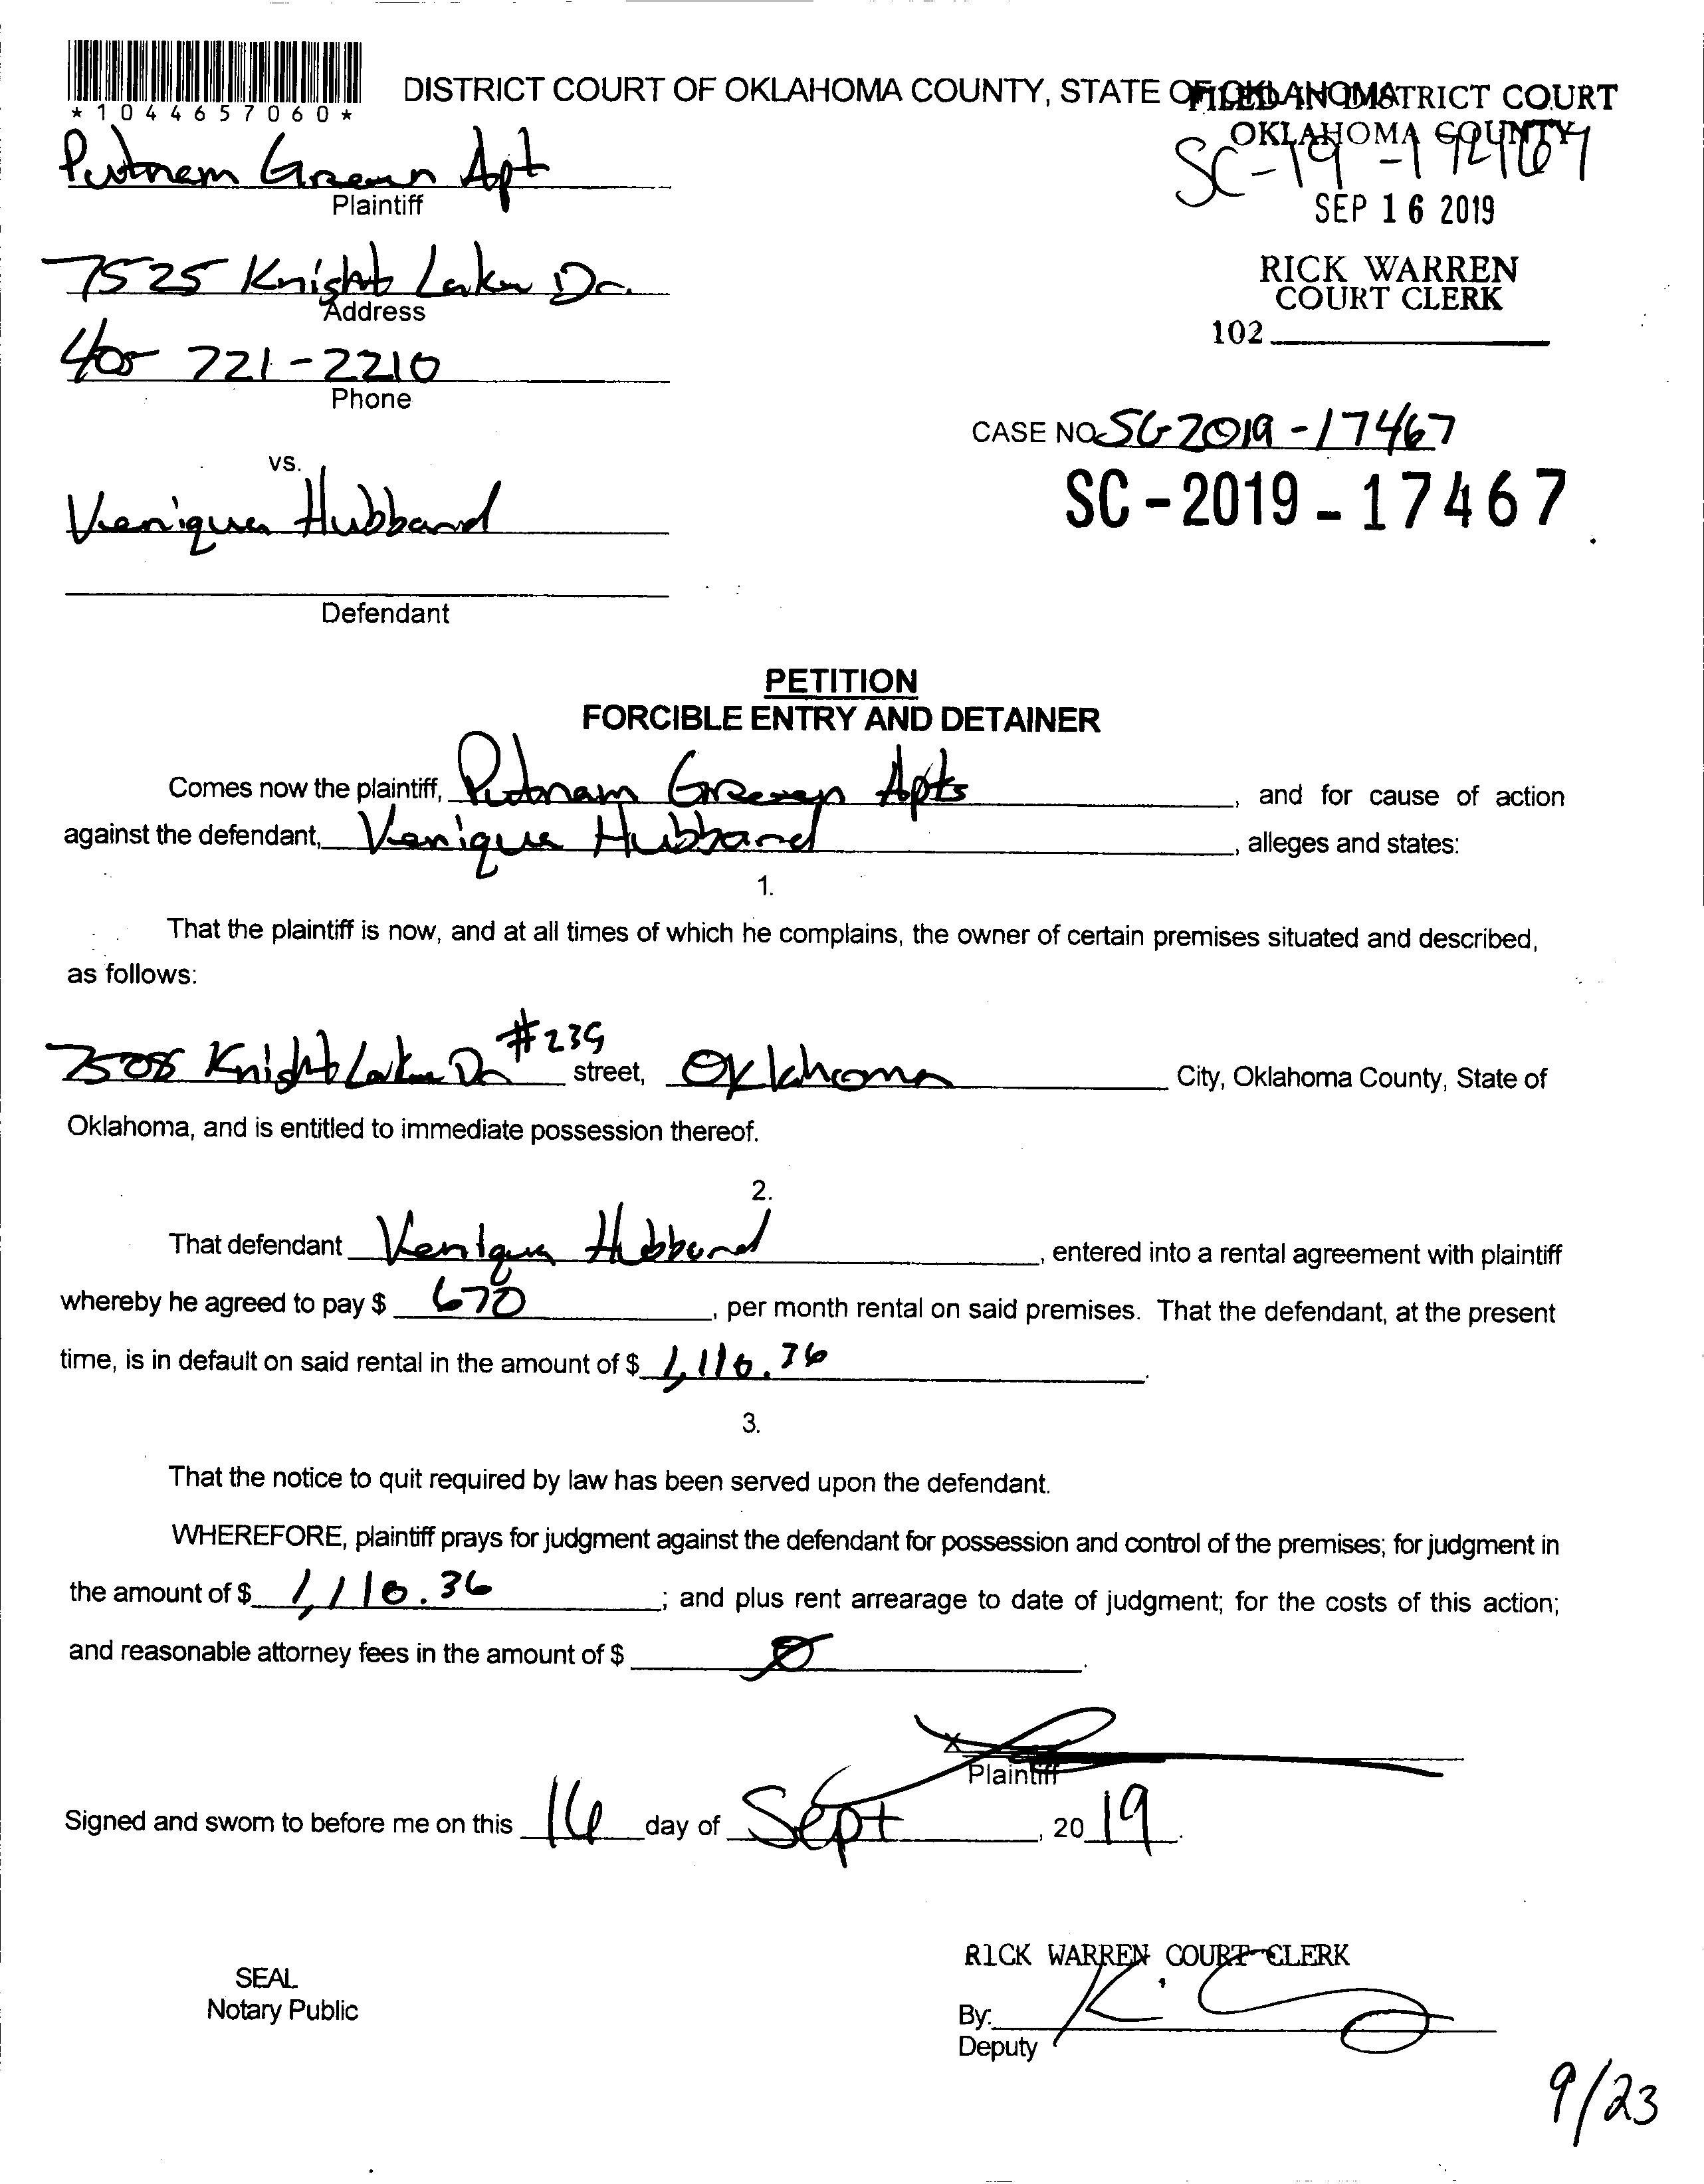 *1044657060*
DISTRICT COURT OF OKLAHOMA COUNTY, STATE OF OKLAHOMA
FILED IN DISTRICT COURT
OKLAHOMA COUNTY
Putnam Green Apt
Plaintiff
SC-19-17467
SEP 16 2019
7525 Knight Lake Dr.
Address
RICK WARREN
COURT CLERK
102
405 721-2210
Phone
CASE NO. SC-2019-17467
vs.
SC-2019-17467
Hubbard
Defendant
PETITION
FORCIBLE ENTRY AND DETAINER
Comes now the plaintiff, Putnam Green Apts, and for cause of action
against the defendant, Hubbard, alleges and states:
1.
That the plaintiff is now, and at all times of which he complains, the owner of certain premises situated and described,
as follows:
7508 Knight Lake Dr street, Oklahoma City, Oklahoma County, State of
Oklahoma, and is entitled to immediate possession thereof.
2.
That defendant Hubbard, entered into a rental agreement with plaintiff
whereby he agreed to pay $ 670, per month rental on said premises. That the defendant, at the present
time, is in default on said rental in the amount of $
3.
That the notice to quit required by law has been served upon the defendant.
WHEREFORE, plaintiff prays for judgment against the defendant for possession and control of the premises; for judgment in
the amount of $ 1,110.36; and plus rent arrearage to date of judgment; for the costs of this action;
and reasonable attorney fees in the amount of $ 0.
X
Plaintiff
Signed and sworn to before me on this 16 day of Sept, 2019.
RICK WARREN COURT CLERK
SEAL
Notary Public
By:
Deputy
9/23